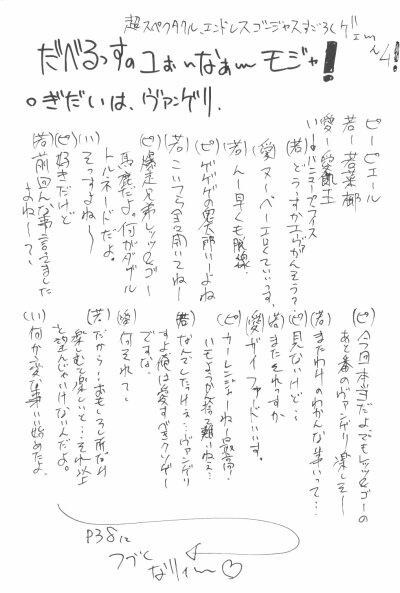 超スペクタクルエンドレスゴージャスすごろくゲェーム4!
だべるっすのコぉぃなぁーモジャ!
○ぎだいは、ヴァンゲリ.
ピーピエール
若ー若葉都
愛ー愛飢王
いーハニューセフィス
(若)どうすかエヴァンそう?
(愛)ヌ〜ベ〜エロくていいっす。
(若)んー早くも脱線
(ピ)ゲゲゲの鬼太郎いーよね
(若)こいつら全然聞いてねー
(ピ)爆走兄弟レッツ&ゴー
馬鹿だよ。何がダブル
トルネードだよ。
(い)そっすよね〜
(ピ)好きだけど
(若)前回んな事言えました
よねーて、
(ピ)今回本当だよでもレッツ&ゴーの
あと番のヴァンゲリ楽しそー
(若)またわけのわかんな事いって…
(ピ)見ないけど…
(若)またそれっすか
(愛)ガイファードいいす。
(ピ)カーレンジャーねー最高
いもようかん捨て難いねぇ…
(若)なんでしたけぇ…ヴァンゲリ
すよ俺は愛すべきクソゲー
ですな。
(愛)何それて
(若)だから…おもしろし所だけ
楽しむて楽しいと…それ以上
を望んじゃいけないんだよ。
(い)何か変な事い始めたよ
P38に
つづく
なりィー♡